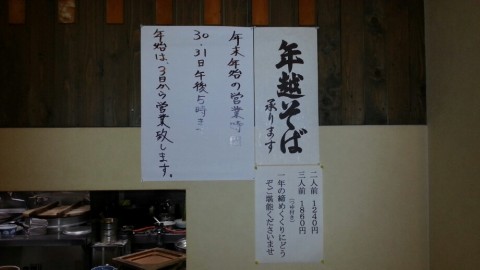 年越そば
承ります
二人前 1240円
三人前 1860円
(つゆ付き)
一年の締めくくりにどう
ぞご堪能くださいませ
年末年始の営業時間
30・31日午後5時まで
年始は、3日から営業致します。